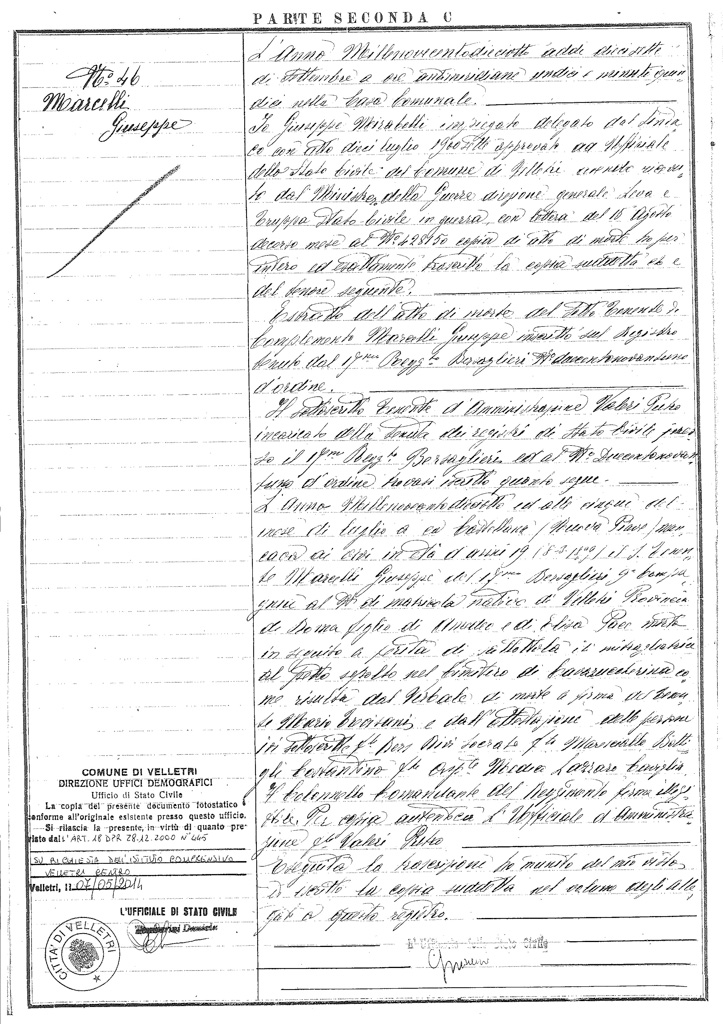 PARTE SECONDA C
N° 46
Marcelli
Giuseppe
L'Anno Millenovecentodieciotto addì diecisette
di Settembre a ore antimeridiane undici e minuti quin-
dici nella Casa Comunale.
Io Giuseppe Mirabelli impiegato delegato dal Sinda-
co con atto dieci luglio 1900sette approvato ad Uffiziale
dello Stato Civile del Comune di Velletri avendo ricevu-
to dal Ministro della Guerra direzione generale Leva e
Truppa Stato Civile in guerra, con lettera del 18 Agosto
decorso mese al N° 428150 copia di atto di morte ho per
intero ed esattamente trascritto la copia suddetta che è
del tenore seguente.
Estratto dell'atto di morte del Sotto Tenente di
Complemento Marcelli Giuseppe inscritto sul Registro
tenuto dal 17mo Regg.to Bersaglieri N° duecentonovantuno
d'ordine.
Il sottoscritto Tenente d'Amministrazione Valeri Pietro
incaricato della tenuta dei registri di Stato Civile pres-
so il 17mo Regg.to Bersaglieri ed al N° Duecentonovan-
tuno d'ordine trovasi inscritto quanto segue.
L'Anno Millenovecentodieciotto ed alli cinque del
mese di luglio a Ca Castellana (Piave) man-
cava ai vivi in età d'anni 19 il S. Tenen-
te Marcelli Giuseppe del 17mo Bersaglieri 9a Compa-
gnia al N° di matricola nativo di Velletri Provincia
di Roma figlio di Amedeo e di Elisa morto
in seguito a ferita di pallottola di mitragliatrice
al petto sepolto nel Cimitero di Cavazuccherina co-
me risulta dal Verbale di morte a firma del Tenen-
te Mario e dall'attestazione delle persone
in sottoscritte f.to Bers f.to Maresciallo
Costantino f.to Lazzaro
Il Colonnello Comandante del Reggimento firma illeggi-
bile. Per copia autentica l'Ufficiale d'Amministra-
zione f.to Valeri Pietro
Eseguita la trascrizione ho munito del mio visto
ed inserito la copia suddetta nel volume degli alle-
gati a questo registro.
L'Ufficiale dello Stato Civile
COMUNE DI VELLETRI
DIREZIONE UFFICI DEMOGRAFICI
Ufficio di Stato Civile
La copia del presente documento fotostatico è
conforme all'originale esistente presso questo ufficio.
Si rilascia la presente, in virtù di quanto pre-
visto dall'ART. 18 DPR 28.12.2000 N° 445
SU RICHIESTA DELL'ISTITUTO COMPRENSIVO
VELLETRI CENTRO
Velletri, lì 07/05/2014
L'UFFICIALE DI STATO CIVILE
CITTÀ DI VELLETRI